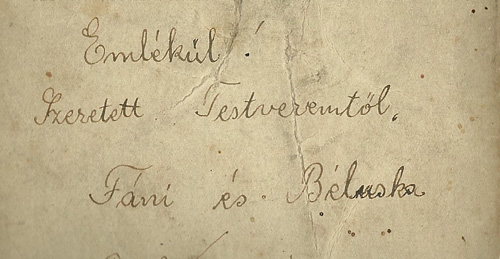 Emlékül!
Szeretett Testveremtöl,
Fáni és Béluska